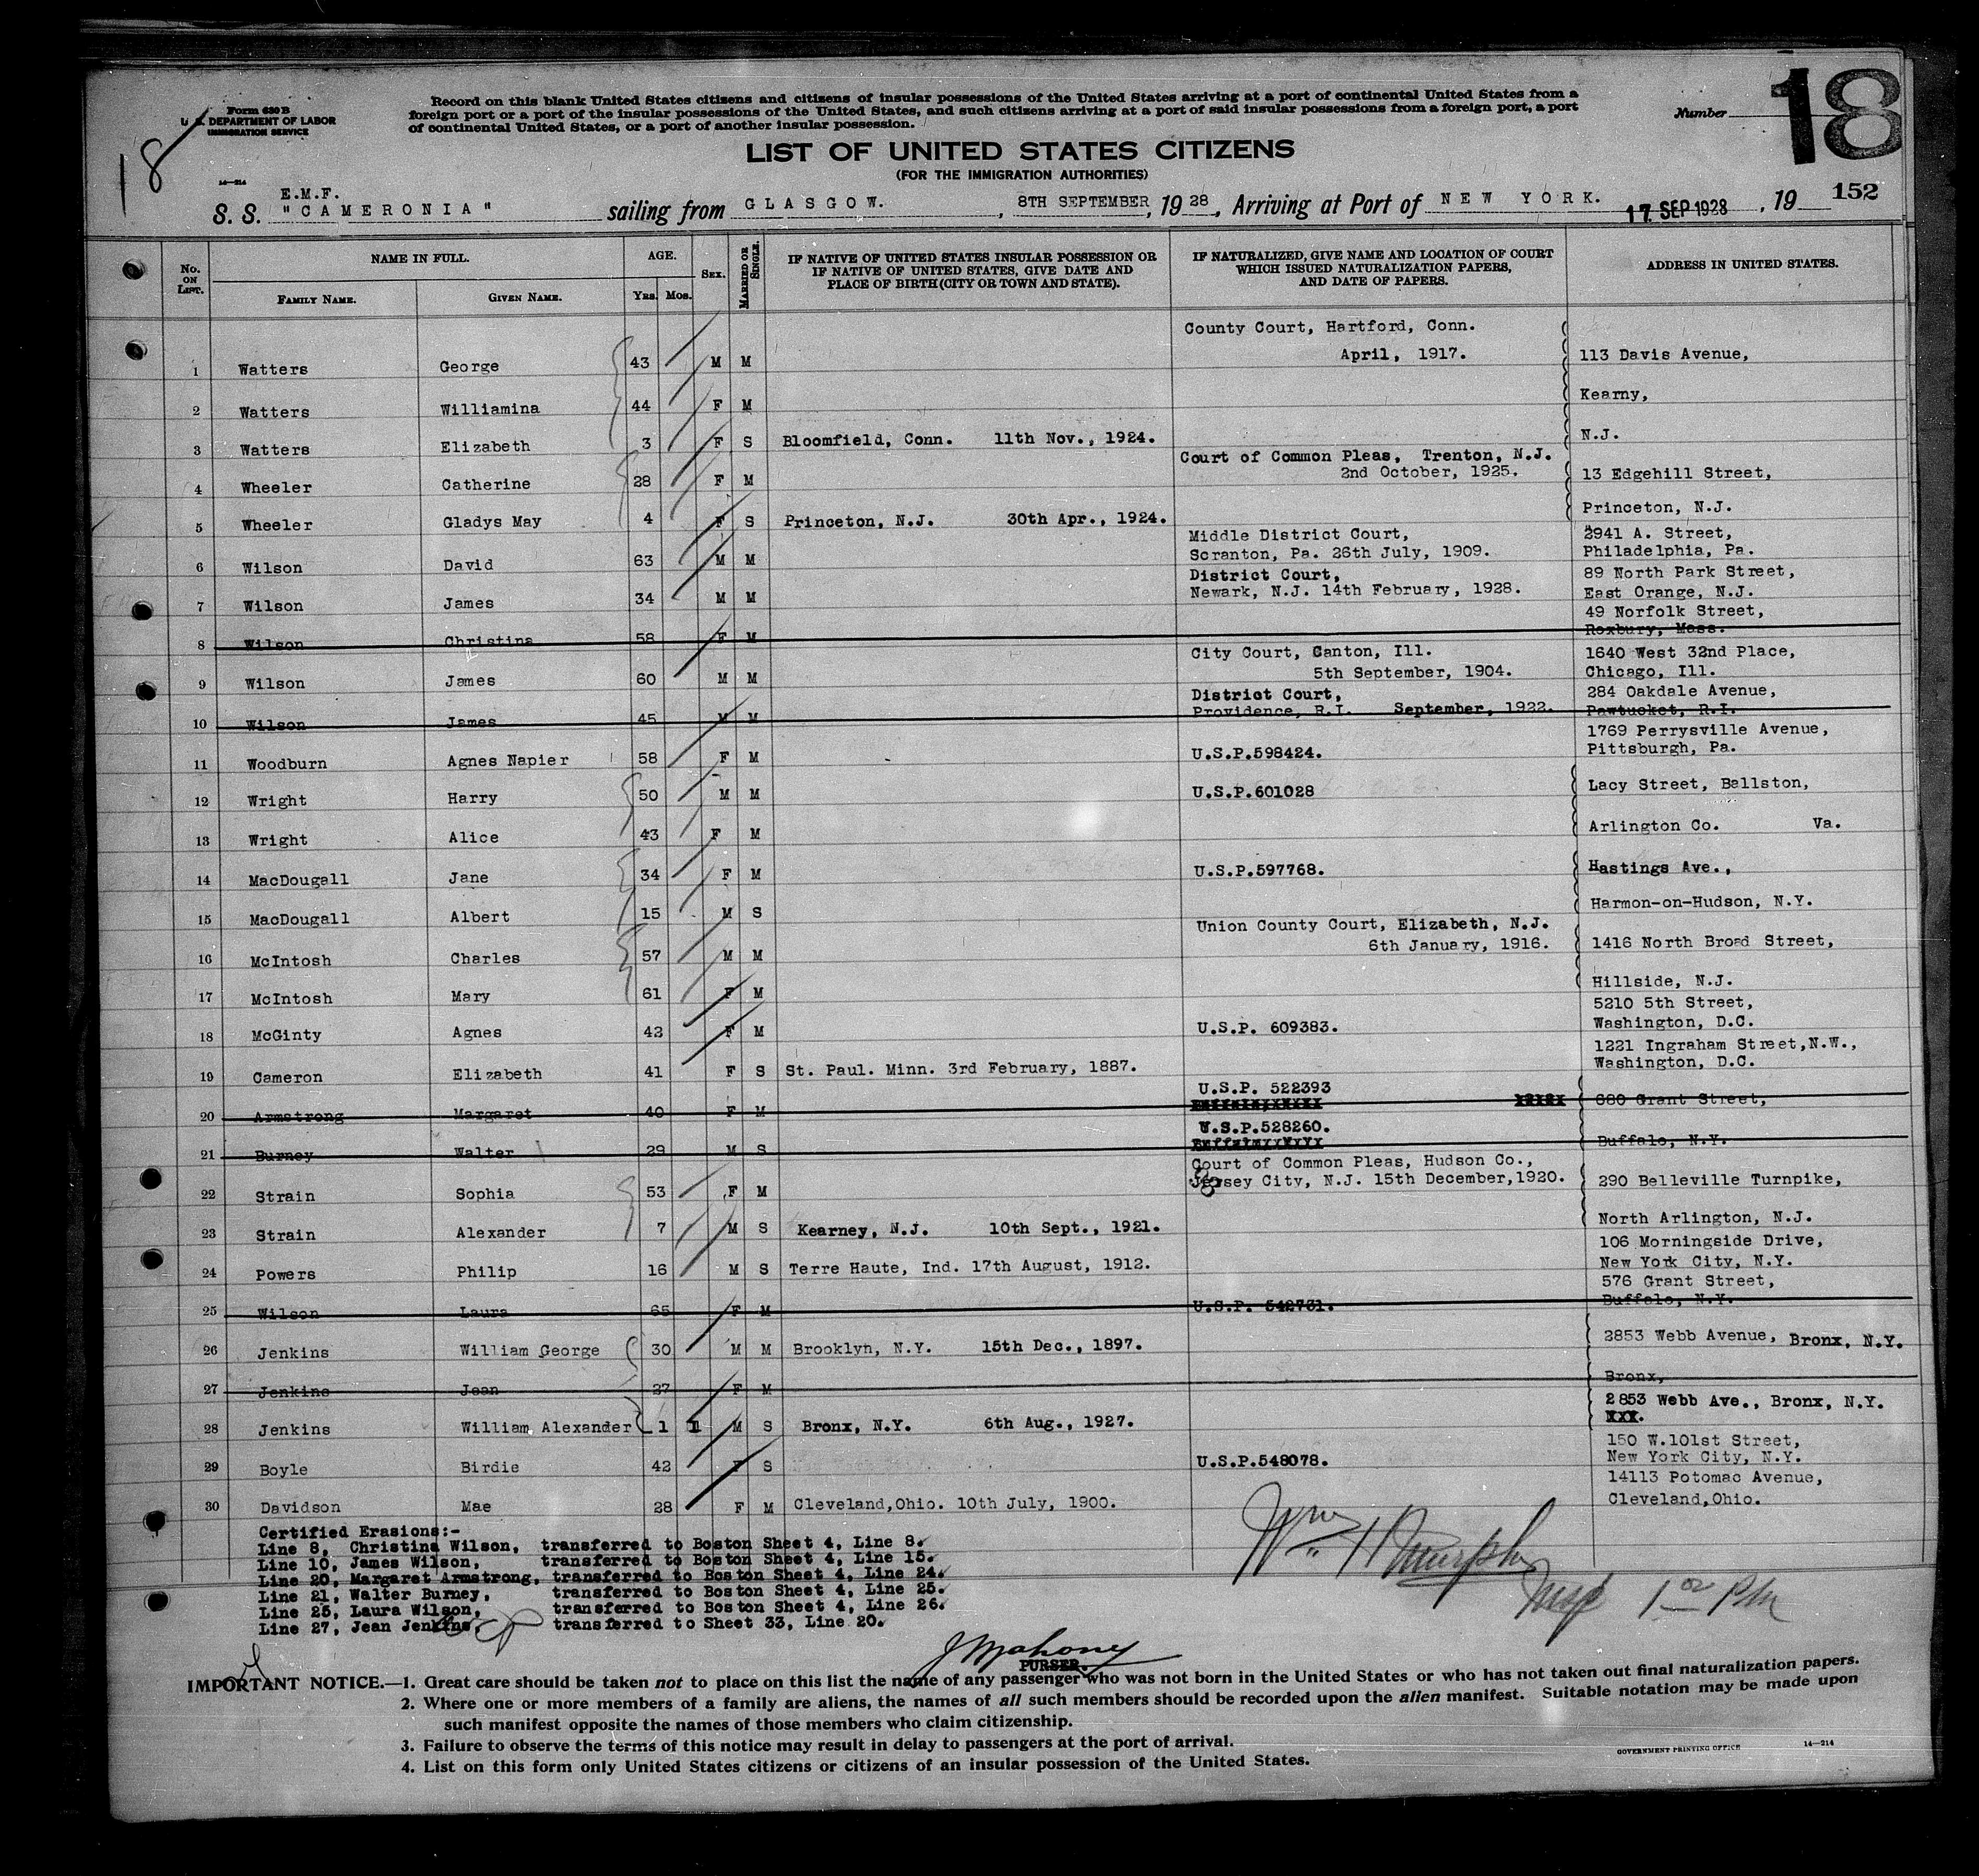 Form 630 B
U. S. DEPARTMENT OF LABOR
IMMIGRATION SERVICE
18
14—214
Record on this blank United States citizens and citizens of insular possessions of the United States arriving at a port of continental United States from a
foreign port or a port of the insular possessions of the United States, and such citizens arriving at a port of said insular possessions from a foreign port, a port
of continental United States, or a port of another insular possession.
Number 18
LIST OF UNITED STATES CITIZENS
(FOR THE IMMIGRATION AUTHORITIES)
152
E.M.F.
S. S. "CAMERONIA" sailing from GLASGOW. , 8TH SEPTEMBER, 19 28, Arriving at Port of NEW YORK. 17 SEP 1928 , 19
No. ON LIST. NAME IN FULL. AGE. SEX. MARRIED OR SINGLE. IF NATIVE OF UNITED STATES INSULAR POSSESSION OR IF NATIVE OF UNITED STATES, GIVE DATE AND PLACE OF BIRTH (CITY OR TOWN AND STATE). IF NATURALIZED, GIVE NAME AND LOCATION OF COURT WHICH ISSUED NATURALIZATION PAPERS, AND DATE OF PAPERS. ADDRESS IN UNITED STATES.
FAMILY NAME. GIVEN NAME. YRS. MOS.
County Court, Hartford, Conn.
1 Watters George 43 M M April, 1917. 113 Davis Avenue,
2 Watters Williamina 44 F M Kearny,
3 Watters Elizabeth 3 F S Bloomfield, Conn. 11th Nov., 1924. N.J.
Court of Common Pleas, Trenton, N.J.
4 Wheeler Catherine 28 F M 2nd October, 1925. 13 Edgehill Street,
5 Wheeler Gladys May 4 F S Princeton, N.J. 30th Apr., 1924. Princeton, N.J.
Middle District Court, 2941 A. Street,
6 Wilson David 63 M M Scranton, Pa. 26th July, 1909. Philadelphia, Pa.
District Court, 89 North Park Street,
7 Wilson James 34 M M Newark, N.J. 14th February, 1928. East Orange, N.J.
49 Norfolk Street,
8 Wilson Christina 58 F M Roxbury, Mass.
City Court, Canton, Ill. 1640 West 32nd Place,
9 Wilson James 60 M M 5th September, 1904. Chicago, Ill.
District Court, 284 Oakdale Avenue,
10 Wilson James 45 M M Providence, R.I. September, 1922. Pawtucket, R.I.
1769 Perrysville Avenue,
11 Woodburn Agnes Napier 58 F M U.S.P.598424. Pittsburgh, Pa.
12 Wright Harry 50 M M U.S.P.601028 Lacy Street, Ballston,
13 Wright Alice 43 F M Arlington Co. Va.
14 MacDougall Jane 34 F M U.S.P.597768. Hastings Ave.,
15 MacDougall Albert 15 M S Harmon-on-Hudson, N.Y.
Union County Court, Elizabeth, N.J.
16 McIntosh Charles 57 M M 6th January, 1916. 1416 North Broad Street,
17 McIntosh Mary 61 F M Hillside, N.J.
5210 5th Street,
18 McGinty Agnes 43 F M U.S.P. 609383. Washington, D.C.
1221 Ingraham Street,N.W.,
19 Cameron Elizabeth 41 F S St. Paul. Minn. 3rd February, 1887. Washington, D.C.
U.S.P. 522393
20 Armstrong Margaret 40 F M 680 Grant Street,
U.S.P.528260.
21 Burney Walter 29 M S Buffalo, N.Y.
Court of Common Pleas, Hudson Co.,
22 Strain Sophia 53 F M Jersey City, N.J. 15th December,1920. 290 Belleville Turnpike,
23 Strain Alexander 7 M S Kearney, N.J. 10th Sept., 1921. North Arlington, N.J.
106 Morningside Drive,
24 Powers Philip 16 M S Terre Haute, Ind. 17th August, 1912. New York City, N.Y.
576 Grant Street,
25 Wilson Laura 65 F M U.S.P. 542731. Buffalo, N.Y.
26 Jenkins William George 30 M M Brooklyn, N.Y. 15th Dec., 1897. 2853 Webb Avenue, Bronx, N.Y.
27 Jenkins Jean 27 F M Bronx,
2853 Webb Ave., Bronx, N.Y.
28 Jenkins William Alexander 1 1 M S Bronx, N.Y. 6th Aug., 1927. XXX.
150 W.101st Street,
29 Boyle Birdie 42 F S U.S.P.548078. New York City, N.Y.
14113 Potomac Avenue,
30 Davidson Mae 28 F M Cleveland,Ohio. 10th July, 1900. Cleveland,Ohio.
Certified Erasions:-
Line 8, Christina Wilson, transferred to Boston Sheet 4, Line 8.
Line 10, James Wilson, transferred to Boston Sheet 4, Line 15.
Line 20, Margaret Armstrong, transferred to Boston Sheet 4, Line 24.
Line 21, Walter Burney, transferred to Boston Sheet 4, Line 25.
Line 25, Laura Wilson, transferred to Boston Sheet 4, Line 26.
Line 27, Jean Jenkins, transferred to Sheet 33, Line 20.
Wm H Murphy
1 00 PM
J Mahony
PURSER.
IMPORTANT NOTICE.—1. Great care should be taken not to place on this list the name of any passenger who was not born in the United States or who has not taken out final naturalization papers.
2. Where one or more members of a family are aliens, the names of all such members should be recorded upon the alien manifest. Suitable notation may be made upon
such manifest opposite the names of those members who claim citizenship.
3. Failure to observe the terms of this notice may result in delay to passengers at the port of arrival.
4. List on this form only United States citizens or citizens of an insular possession of the United States.
GOVERNMENT PRINTING OFFICE 14—214